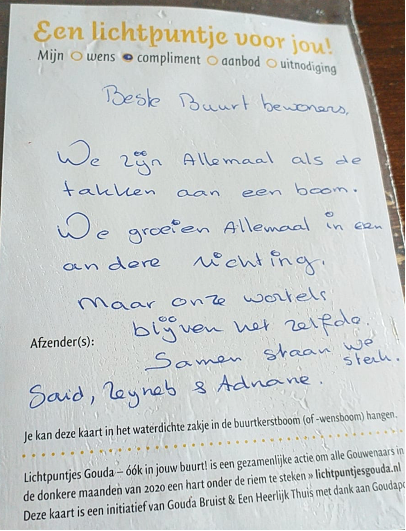 Een lichtpuntje voor jou!
Mijn wens compliment aanbod uitnodiging
Beste Buurt bewoners,
We zijn Allemaal als de
takken aan een boom.
We groeien Allemaal in een
andere richting.
Maar onze wortels
blijven het zelfde.
Afzender(s):
Samen staan we
sterk.
Said, Zeyneb & Adnane.
Je kan deze kaart in het waterdichte zakje in de buurtkerstboom (of -wensboom) hangen.
Lichtpuntjes Gouda – óók in jouw buurt! is een gezamenlijke actie om alle Gouwenaars in
de donkere maanden van 2020 een hart onder de riem te steken » lichtpuntjesgouda.nl
Deze kaart is een initiatief van Gouda Bruist & Een Heerlijk Thuis met dank aan Goudapo